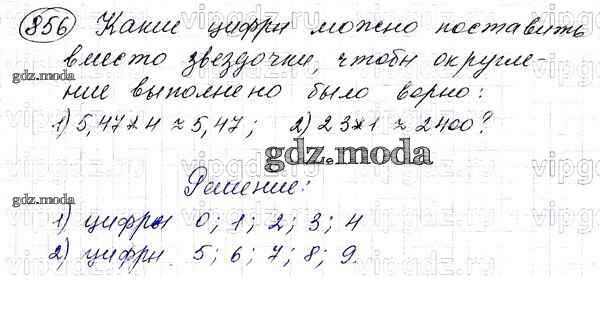 856 Какие цифры можно поставить
вместо звездочки, чтобы округле-
ние выполнено было верно:
1) 5,47*4 ≈ 5,47; 2) 23*1 ≈ 2400?
gdz.moda
gdz.moda
gdz.moda
Решение:
1) цифры 0; 1; 2; 3; 4
2) цифры 5; 6; 7; 8; 9.